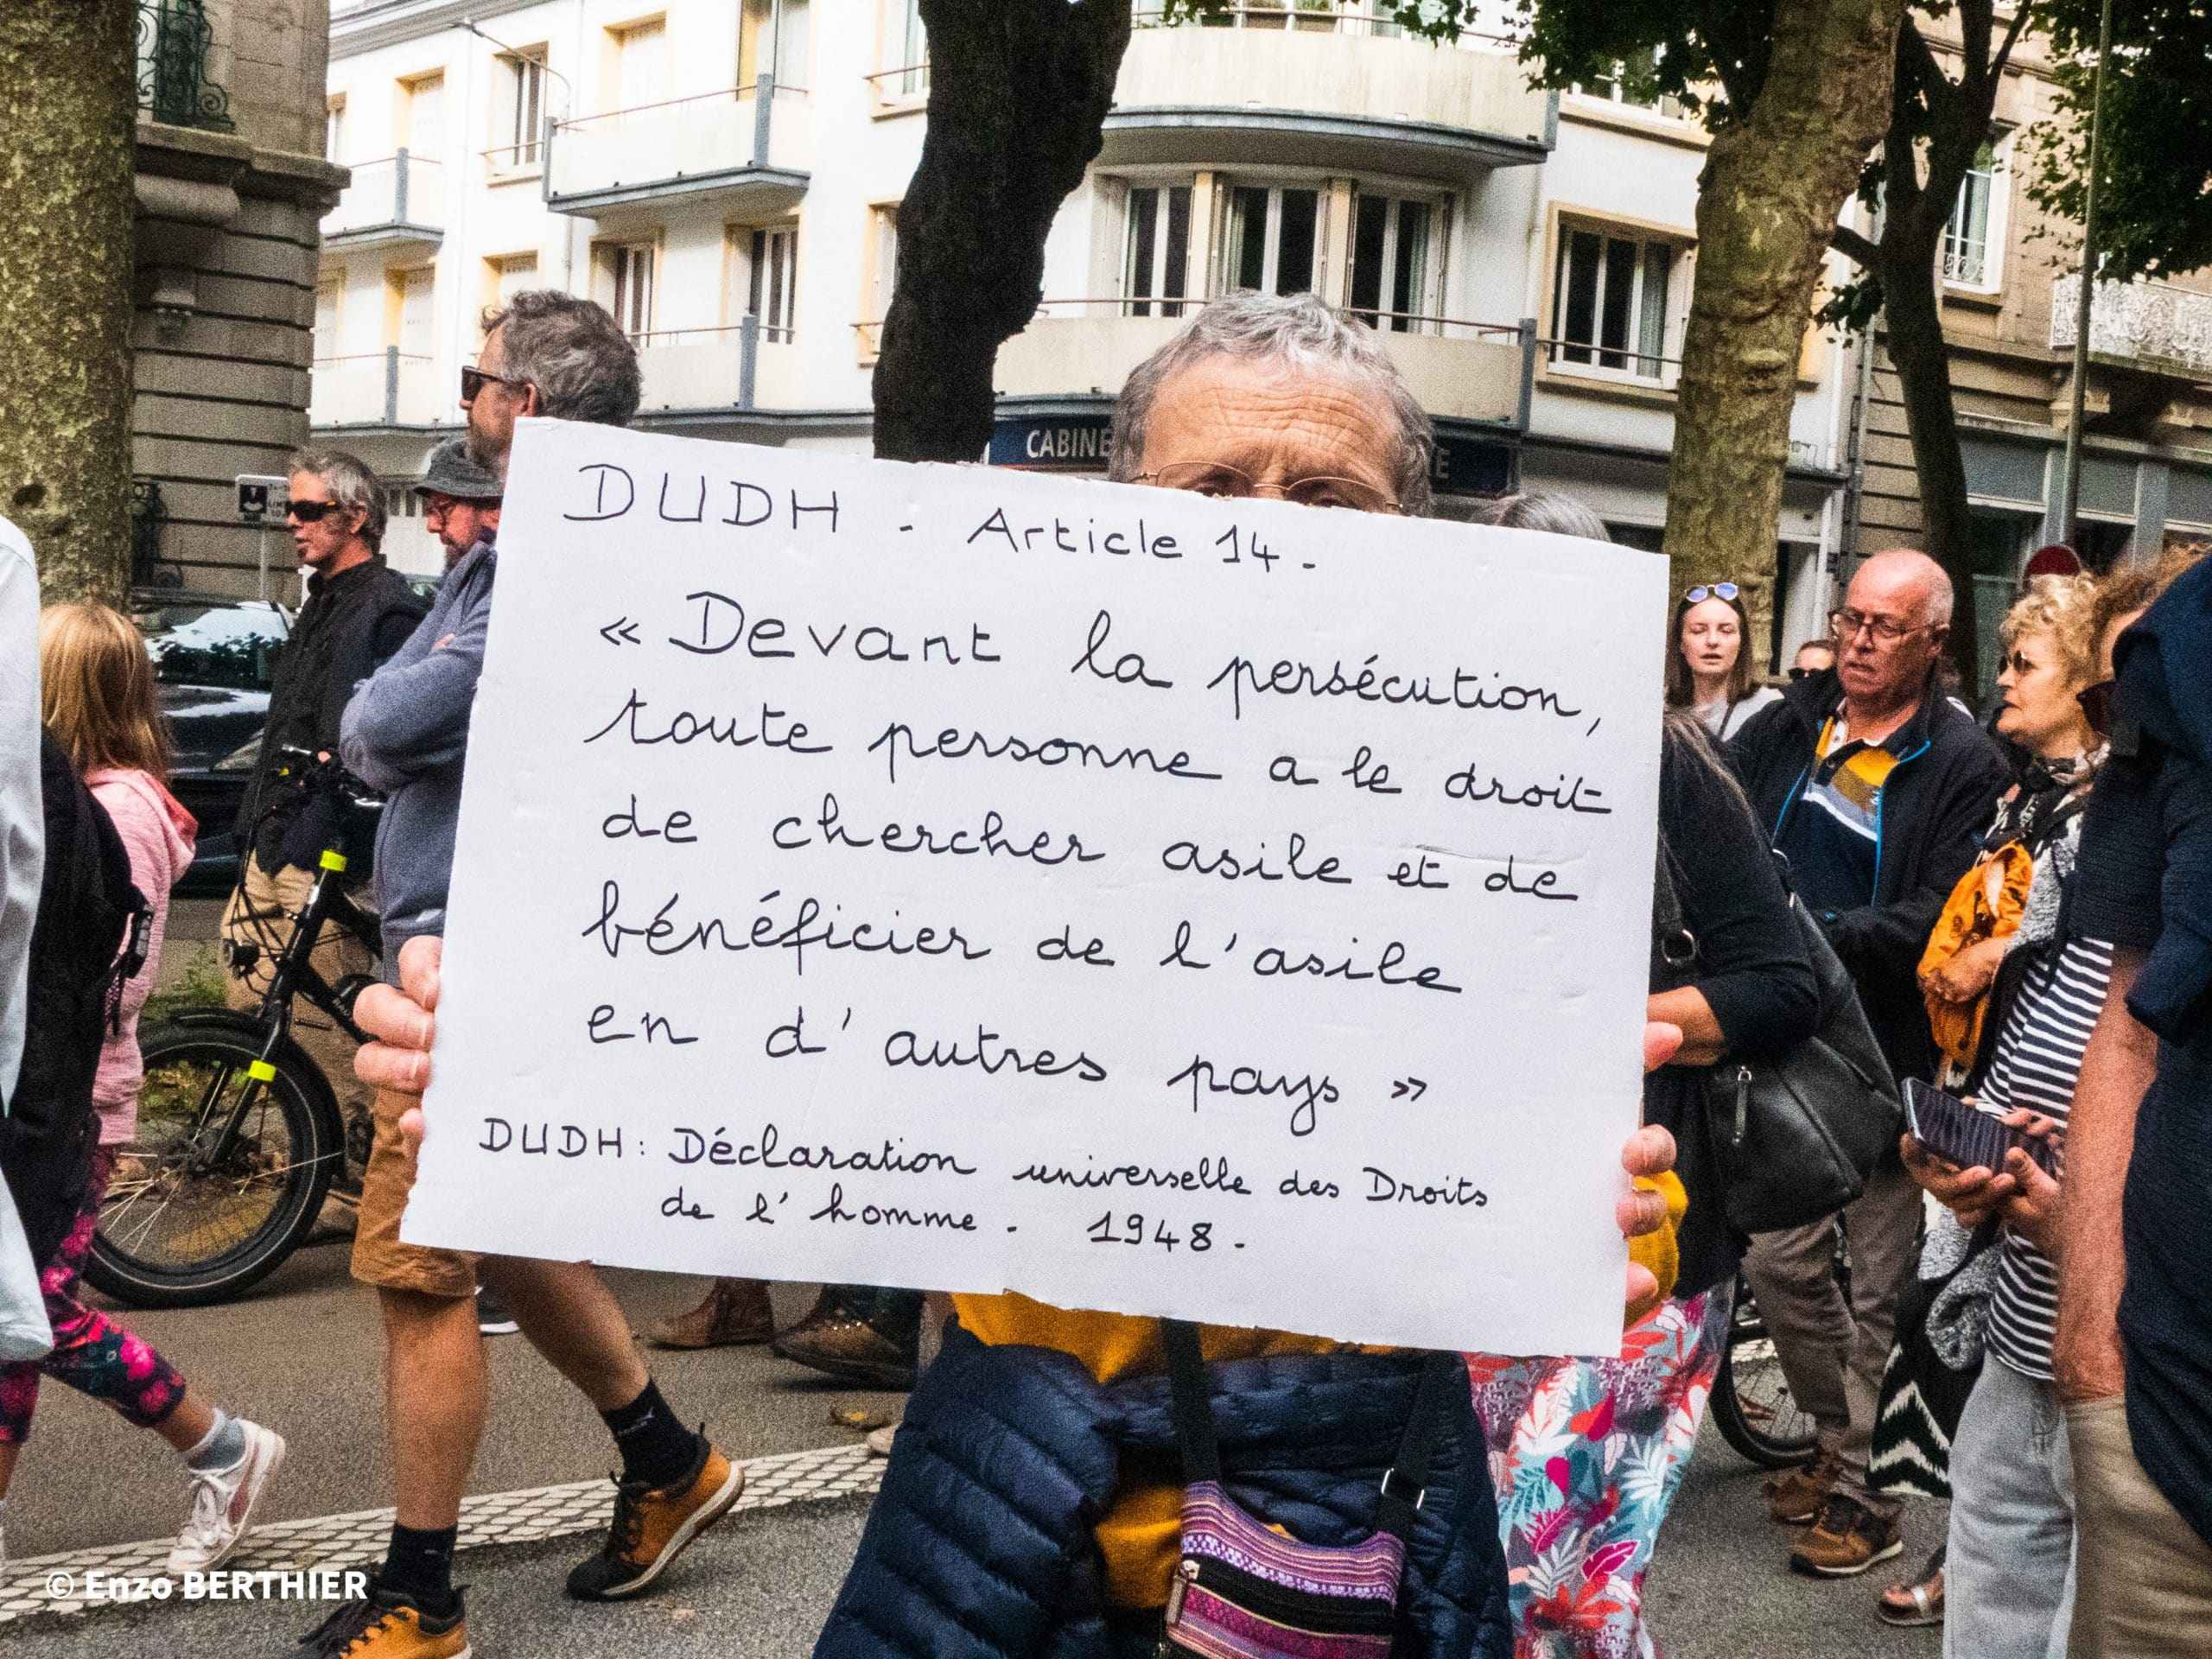 CABINE
DUDH - Article 14.
« Devant la persécution,
toute personne a le droit
de chercher asile et de
bénéficier de l'asile
en d'autres pays »
DUDH : Déclaration universelle des Droits
de l'homme. 1948.
© Enzo BERTHIER